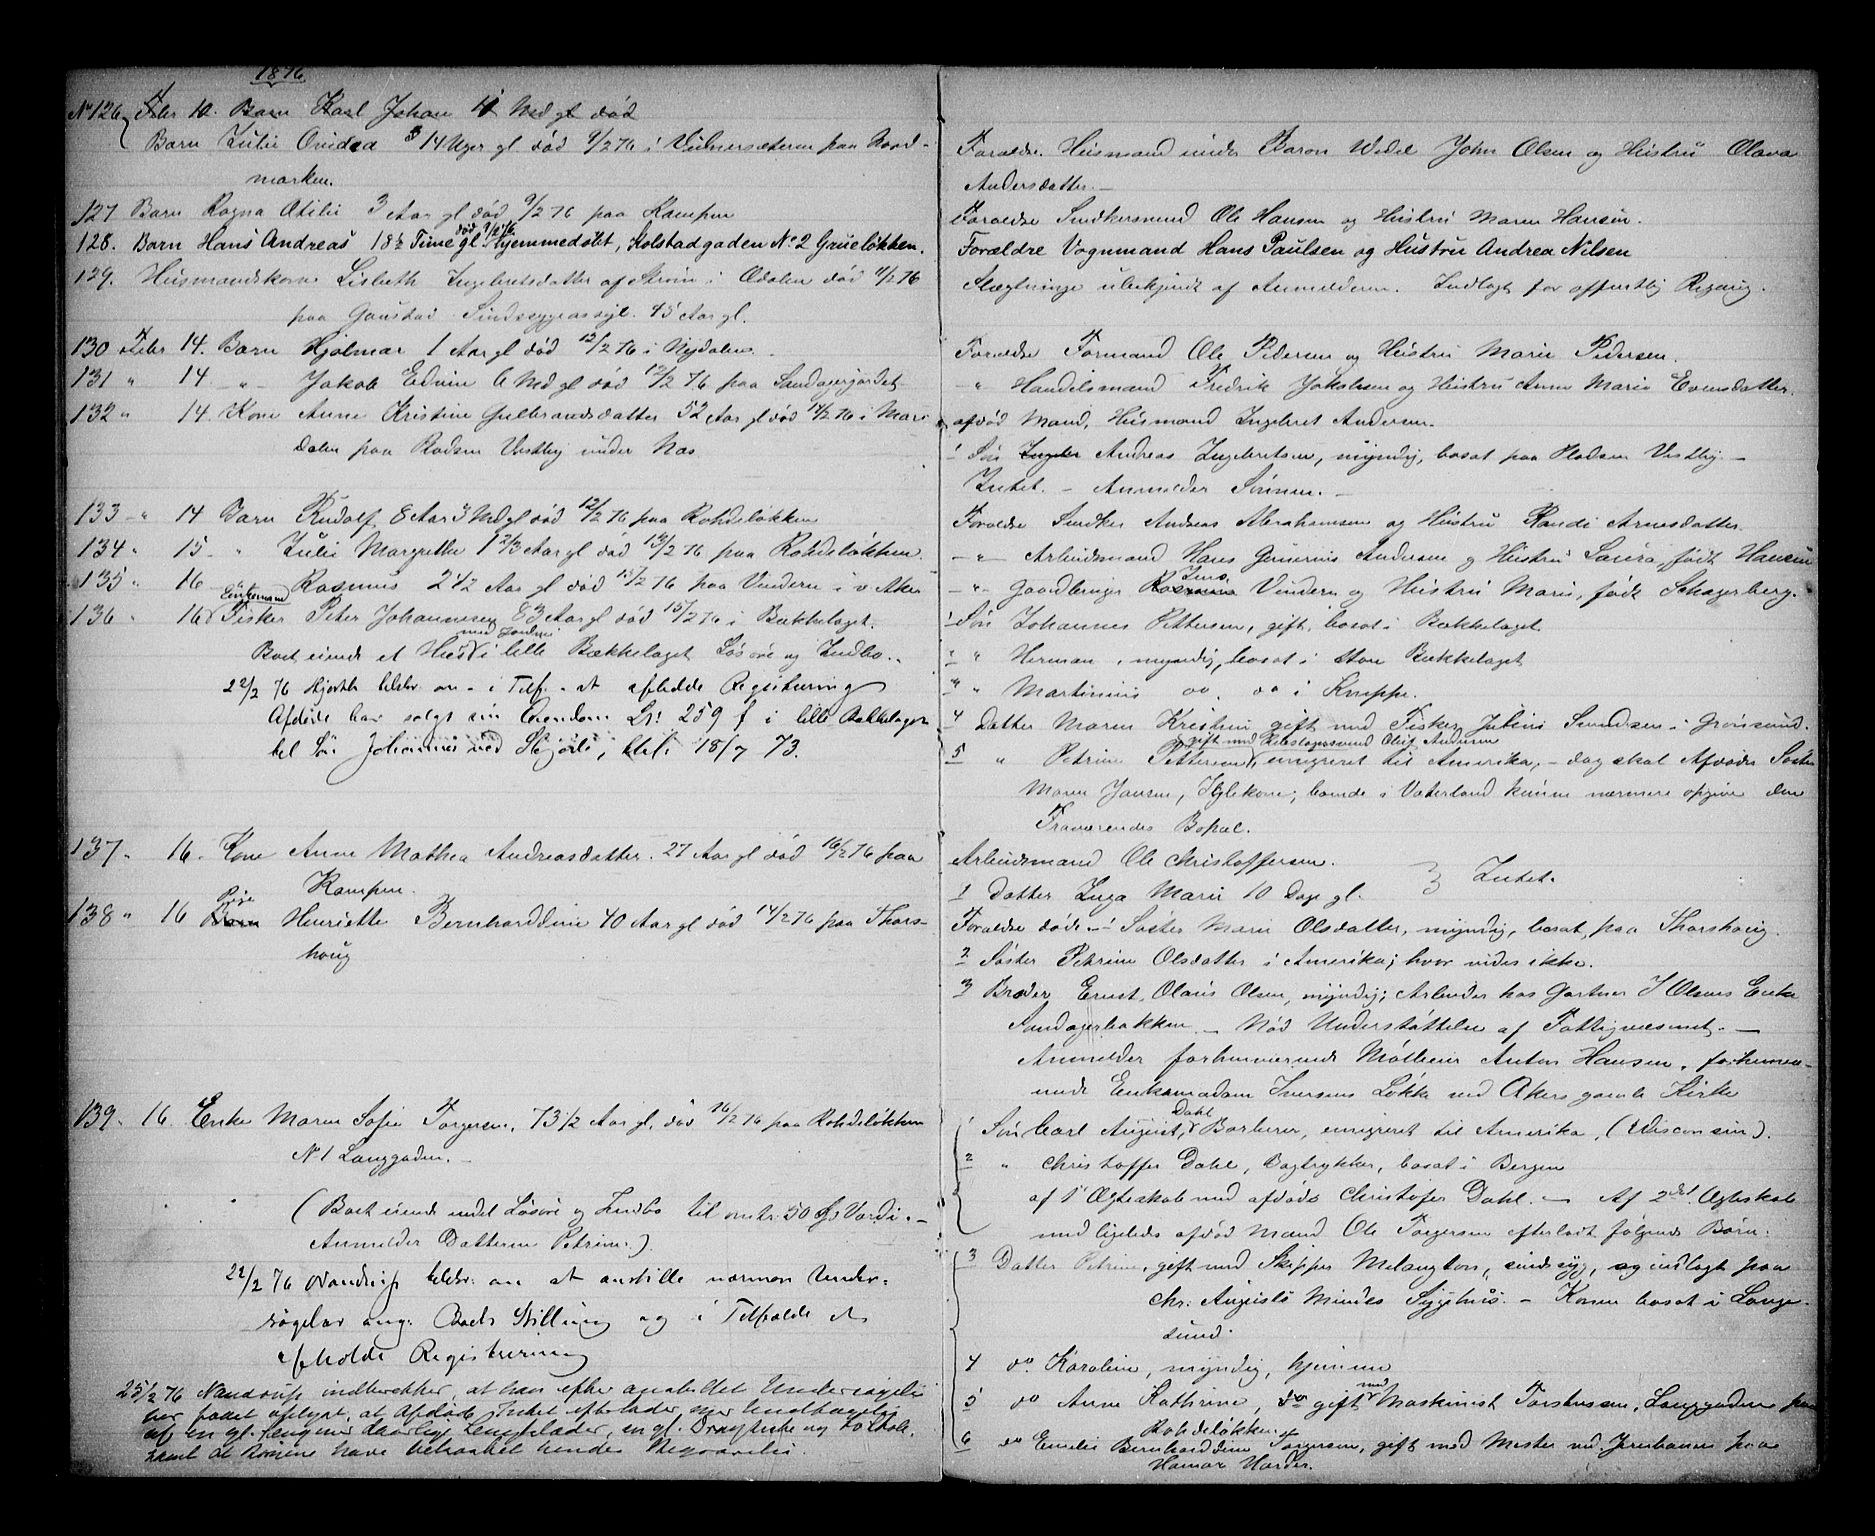 1876
No 126 Febr 10. Barn Karl Johan 4 Md gl død
Barn Julie Ovidea 14 Uger gl død 9/2 76 i paa Nord-
marken.
127 Barn Ragna Otilie 3 Aar gl død 9/2 76 paa Kampen
128. Barn Hans Andreas 18½ Time gl død 9/2 76 Hjemmedøbt, Kolstadgaden No 2 Grueløkken.
129. Husmandskone Lisbeth Ingebretsdatter af Strøm i Odalen død 9/2 76
paa Gaustad Sindssygeasyl. 45 Aar gl.
130 Febr 14. Barn Hjalmar 1 Aar gl død 12/2 76 i Nydalen.
131 " 14. -"- Jakob Edvin 6 Md gl død 12/2 76 paa Sandagerjordet
132 " 14. Kone Anne Kristine Gulbrandsdatter 52 Aar gl død 14/2 76 i Mari
dalen paa Pladsen Vestby under Næs
133 -" 14 Barn Rudolf, 8 Aar 3 Md gl død 12/2 76 paa Rohdeløkken
134 " 15. " Julie Margrethe 1 2/3 Aar gl død 13/2 76 paa Rohdeløkken.
135 " 16 " Rasmus 2½ Aar gl død 15/2 76 paa Vindern i v Aker
136 " 16 Enkemand Fisker Peter Johannesen 83 Aar gl død 15/2 76 i Bækkelaget.
Boet eiende et Hus med Jordvei i lille Bækkelaget Løsøre og Indbo.
22/2 76 Hjorth beldr. om - i Tilf. - at afholde Registrering
Afdøde har solgt sin Eiendom Lr: 259 f i lille Bækkelaget
til Søn Johannes ved Skjøde, 18/7 73.
137 " 16. Kone Anne Mathea Andreasdatter. 27 Aar gl død 16/2 76 paa
Kampen.
138 " 16 Barn Pige Henriette Bernharddine 40 Aar gl død 14/2 76 paa Thors-
houg
139 " 16. Enke Maren Sofie Torgersen, 73½ Aar gl. død 16/2 76 paa Rohdeløkken
No 1 Langgaden. -
(Boet eiende endel Løsøre og Indbo til omtr. 50 Værdi. -
Anmelder Datteren Petrine.)
22/2 76 Nandrup beldr. om at anstille nærmere Under-
søgelser ang. Boets Stilling og i Tilfælde at
afholde Registrering
25/2 76 Nandrup indberetter, at han efter anstillet Undersøgelse
har faaet oplyst, at Afdøde Intet efterlader, naar undtages
af en gl. Seng med daarlige Sengklæder, en gl. Dragkiste og
samt at Børnene have bekostet hendes Begravelse.
Forældre. Husmand under Baron Wedel John Olsen og Hustru Olava
Andersdatter. -
Forældre Snedkersvend Ole Hansen og Hustru Maren Hansen.
Forældre Vognmand Hans Paulsen og Hustru Andrea Nilsen
Slægtninge ubekjendt af Anmelderen. Indlagt for offentlig Regning.
Forældre Formand Ole Pedersen og Hustru Marie Pedersen.
-"- Handelsmand Fredrik Jakobsen og Hustru Anne Marie Evensdatter.
afdød Mand, Husmand Ingebret Andersen.
1 Søn Andreas Ingebretsen, myndig, bosat paa Pladsen Vestby. -
Intet. - Anmelder Sønnen. -
Forældre Snedker Andreas Abrahamsen og Hustru Randi Arnesdatter.
-"- Arbeidsmand Hans Gunerius Andersen og Hustru Laura, født Hansen
-"- Gaardbruger Rasmus Jens Vindern og Hustru Marie, født Schagerberg.
1 Søn Johannes Pettersen, gift, bosat i Bækkelaget
2 " Herman, myndig, bosat i store Bækkelaget
3 " Martinius do. do i Knappe.
4 Datter Maren Kristine gift med Fisker Julius Svendsen i Grønsund.
5 " Petrine Pettersen gift med Olaf Andersen, emigreret til Amerika, - dog skal Afdødes Søster
Maren Jansen, Føllekone, boende i Vaterland kunne nærmere opgive den
Fraværendes Bopæl.
Arbeidsmand Ole Christoffersen.
1 Datter Inga Marie 10 Dage gl. } Intet.
Forældre døde. - 1 Søster Marie Olsdatter, myndig, bosat paa Thorshoug.
2 Søster Petrine Olsdatter i Amerika; hvor vides ikke.
3 Broder Ernst Olaus Olsen, myndig; Arbeider hos Gartner J Olsens Enke
Sandagerbakken - Nød Understøttelse af Fattigvæsenet. -
Anmelder forhenværende Møller Anton Hansen, forhenvæ-
rende Enkemadam Iversens Løkke ved Akers gamle Kirke
1 Søn Carl August Dahl, Barberer, emigreret til Amerika, (Wisconsin).
2 " Christoffer Dahl, Bogtrykker, bosat i Bergen
af 1ste Ægteskab med afdøde Christofer Dahl. - Af 2det Ægteskab
med ligeledes afdød Mand Ole Torgersen efterladt følgende Børn:
3 Datter Petrine, gift med Skipper Melangton, sindssyg, og indlagt paa
Chr. Augusts Mindes Sygehus. - Konen bosat i Lange-
sund.
4 do. Karoline, myndig, hjemme
5 do Anne Kathrine, gift med Maskinist Torstensen, Langgaden paa
Rohdeløkken
6 do Emilie Bernharddine Torgersen, gift med Mester ved Jernbanen paa
Hamar Harder.